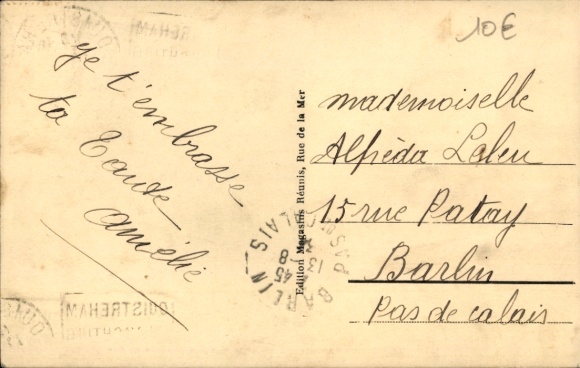 10€
je t'embrasse
ta Tante
Amélie
Edition Magasins Réunis, Rue de la Mer
mademoiselle
Alfréda Laleu
15 rue Patay
Barlin
Pas de calais
BARLIN
PAS DE CALAIS
13 8
45
OUISTREHAM